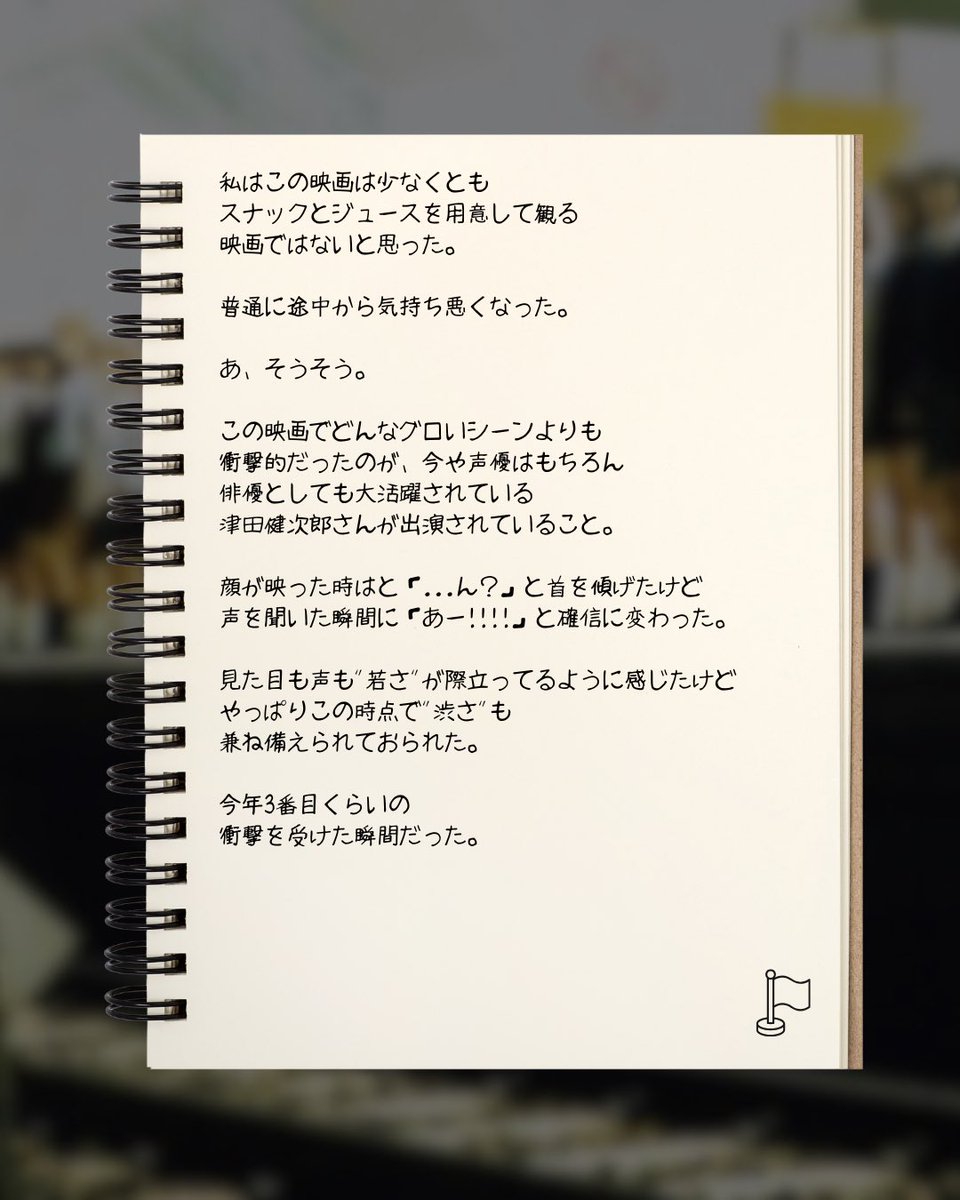 私はこの映画は少なくとも
スナックとジュースを用意して観る
映画ではないと思った。
普通に途中から気持ち悪くなった。
あ、そうそう。
この映画でどんなグロいシーンよりも
衝撃的だったのが、今や声優はもちろん
俳優としても大活躍されている
津田健次郎さんが出演されていること。
顔が映った時はと『...ん？』と首を傾げたけど
声を聞いた瞬間に『あー!!!!』と確信に変わった。
見た目も声も"若さ"が際立ってるように感じたけど
やっぱりこの時点で"渋さ"も
兼ね備えられておられた。
今年3番目くらいの
衝撃を受けた瞬間だった。